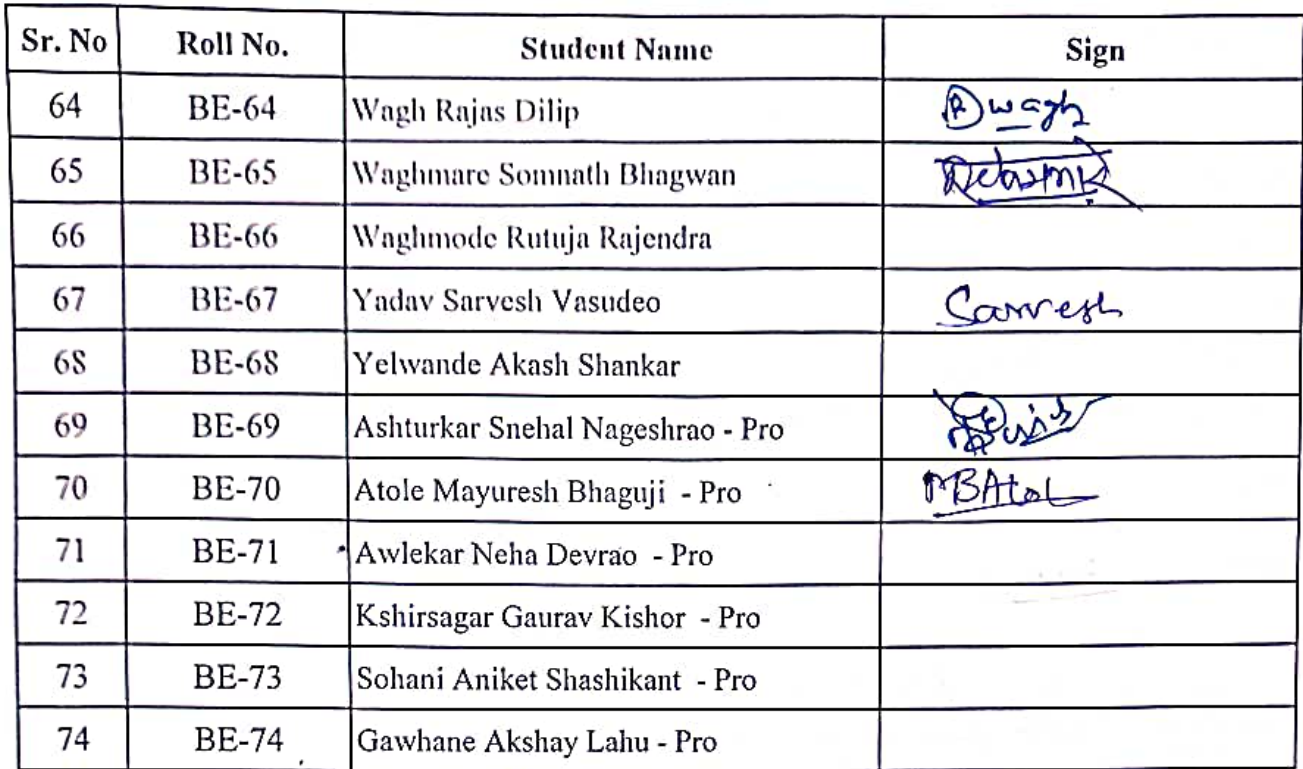 Sr. No Roll No. Student Name Sign
64 BE-64 Wagh Rajas Dilip Rwagh
65 BE-65 Waghmare Somnath Bhagwan
66 BE-66 Waghmode Rutuja Rajendra
67 BE-67 Yadav Sarvesh Vasudeo Sarvesh
68 BE-68 Yelwande Akash Shankar
69 BE-69 Ashturkar Snehal Nageshrao - Pro
70 BE-70 Atole Mayuresh Bhaguji - Pro MBAtol
71 BE-71 Awlekar Neha Devrao - Pro
72 BE-72 Kshirsagar Gaurav Kishor - Pro
73 BE-73 Sohani Aniket Shashikant - Pro
74 BE-74 Gawhane Akshay Lahu - Pro